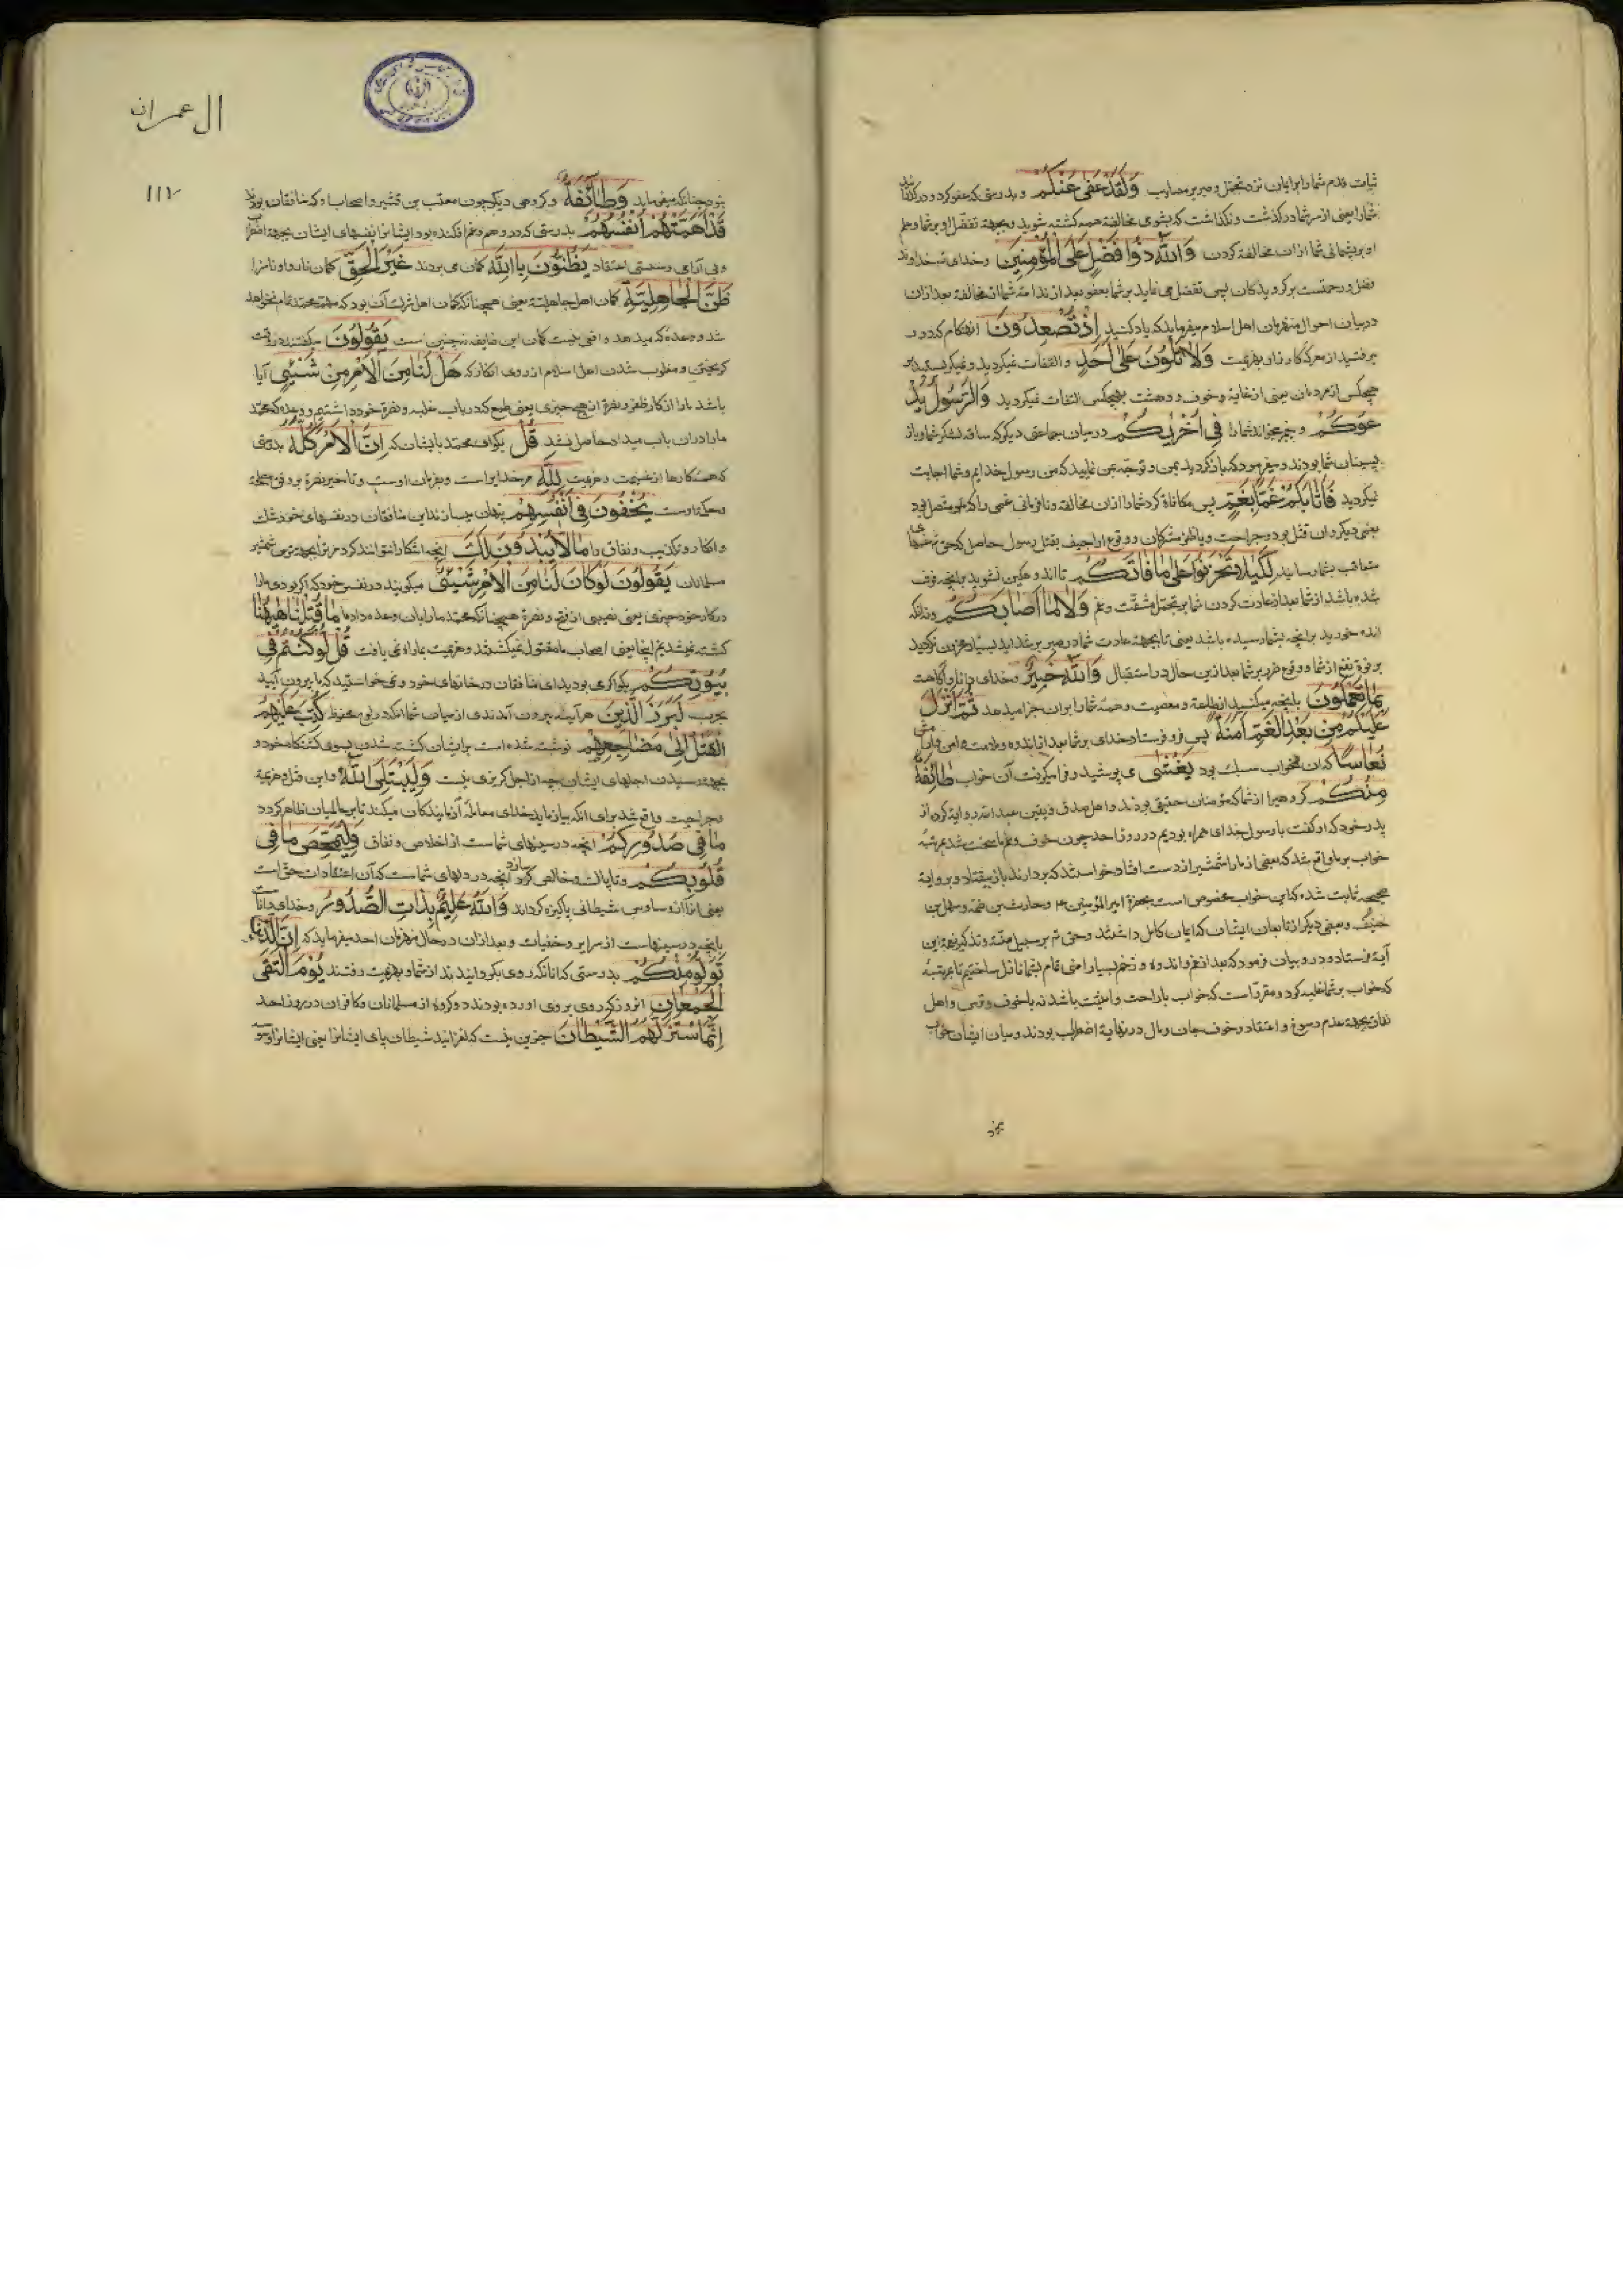 ثبات قدم شما را بر ایمان نزد تحمل و صبر بر مصایب وَلَقَدْ عَفَى عَنْكُمْ و بدرستی که عفو کرد و درگذرانید
شما را یعنی از سر شما درگذشت و نگذاشت که بشومی مخالفة همه کشته شوید و بجهة تفضل او بر شما و علم
او بر پشمانی شما از ان مخالفة کردن وَاللّٰهُ ذُو فَضْلٍ عَلَى الْمُؤْمِنِينَ و خدای تعـ خداوند
فضل و رحمتست بر گرویدکان پس تفضل می نماید بر شما بعفو بعد از ندامة شما از مخالفة بعد ازان
در بیان احوال منهزمان اهل اسلام میفرماید که یاد کنید اِذْ تُصْعِدُونَ انهنکام که دور
برفتید از معرکه کارزار و بهزیمت وَلَا تَلْوُونَ عَلَى اَحَدٍ و التفات نمیکردید و نمیگریستید بر
هیچکس از مردمان یعنی از غایة و خوف و دهشت بهیچکس التفات نمیکردید وَالرَّسُولُ يَدْ
عُوكُمْ و پیغمبر میخواند شما را فِى اُخْرٰيكُمْ در میان جماعتی دیگر که ساقه لشکر شما و باز
پسینان شما بودند و میفرمود که باز گردید بمن و توجه بمن نمایید که من رسول خدایم و شما اجابت
نمیکردید فَاَثَابَكُمْ غَمًّا بِغَمٍّ پس مکافاة کرد شما را از ان مخالفة و نافرمانی غمی را که متصل بود
بغمی دیگر و ان قتل بود و جراحت و یا ظفر مشرکان و وقوع اراجیف بقتل رسول حاصل که حق تعـ غمها
متعاقب بشما رسانید لِكَيْلَا تَحْزَنُوا عَلَى مَا فَاتَكُمْ تا اندوهگین نشوید بر انچه فوت
شده باشد از شما بعد از عادت کردن شما بر تحمل مشقت و غم وَلَا مَا اَصَابَكُمْ و نه انکه
اندوه خورید بر انچه بشما رسیده باشد یعنی تا بجهة عادت شما در صبر بر شداید بسیار محزون نگردید
بر فوت نفع از شما و وقوع ضرر بر شما بعد ازین حال در استقبال وَاللّٰهُ خَبِيرٌ و خدای دانا و آگاهست
بِمَا تَعْمَلُونَ بانچه میکنید از طاعة و معصیت و همه شما را بران جزا میدهد ثُمَّ اَنْزَلَ
عَلَيْكُمْ مِنْ بَعْدِ الْغَمِّ اَمَنَةً پس فرو فرستاد خدای بر شما بعد از اندوه و ملامت امنی
نُعَاسًا که ان خواب سبک بود يَغْشٰى می پوشید و فرا میگرفت آن خواب طَائِفَةً
مِنْكُمْ گروهی را از شما که مؤمنان حقیقی بودند و اهل صدق و یقین عبد الله روایة کرده از
پدر خود که او گفت با رسول خدای همراه بودیم در روز احد چون خوف و غم ما سخت شد بمرتبة
خواب بر ما واقع شد که بعضی از ما را شمشیر از دست افتاد خواستند که بردارند باز بیفتاد و بروایة
صحیحه ثابت شده که این خواب مخصوص است بحضرة امیر المؤمنین ع و حارث بن صمة و سهل بن
حنیف و بعضی دیگر از تابعان ایشان که ایمان کامل داشتند و حق تعـ بر سبیل منة و تذکیر نعمة این
آیة فرستاد و در و بیان فرمود که بعد از غم و اندوه و زخم بسیار امنی تمام بشما نازل ساختیم تا بمرتبة
که خواب بر شما غلبه کرد و مقرر است که خواب با راحت و امنیت باشد نه با خوف و ترس و اهل
نفاق بجهة عدم رسوخ و اعتقاد و خوف جان و مال در نهایة اضطراب بودند و میان ایشان خواب
نبود
ال عمران
۱۱۲
نبود چنانکه میفرماید وَطَائِفَةٌ و گروهی دیگر چون معتب بن قشیر و اصحاب او که منافقان بودند
قَدْ اَهَمَّتْهُمْ اَنْفُسُهُمْ بدرستی که در هم و غم افکنده بود ایشانرا نفسهای ایشان بجهة اضطراب
و بی آرامی و سستی اعتقاد يَظُنُّونَ بِاللّٰهِ گمان می بردند غَيْرَ الْحَقِّ گمان ناروا و ناسزا
ظَنَّ الْجَاهِلِيَّةِ گمان اهل جاهلیة یعنی همچنانکه گمان اهل شرک آن بود که مهم محمد تمام نخواهد
شد و وعده که میدهد واقع نیست گمان این طایفه نیز چنین است يَقُولُونَ میگفتند در وقت
گریختن و مغلوب شدن اهل اسلام از روی انکار که هَلْ لَنَا مِنَ الْاَمْرِ مِنْ شَىْءٍ آیا
باشد ما را از کار ظفر و نصرة از هیچ چیزی یعنی طمع که در باب غلبه و نصرة خود داشتیم و وعده که محمد
ما را دران باب میداد حاصل نشد قُلْ بگو ای محمد با ایشان که اِنَّ الْاَمْرَ كُلَّهُ بدرستی
که همه کارها از غنیمت و هزیمت لِلّٰهِ مر خدایراست و بفرمان اوست و تاخیر نصرة بر وفق مصلحة
و حکم اوست يُخْفُونَ فِى اَنْفُسِهِمْ پنهان میسازند این منافقان در نفسهای خود شک
و انکار و تکذیب و نفاق را مَا لَا يُبْدُونَ لَكَ انچه اشکارا نتوانند کرد مر ترا بجهة ترس شمشیر
مسلمانان يَقُولُونَ لَوْ كَانَ لَنَا مِنَ الْاَمْرِ شَىْءٌ میگویند در نفس خود که اگر بودی ما را
در کار خود چیزی یعنی نصیبی از فتح و نصرة همچنانکه محمد ما را بان وعده داد مَا قُتِلْنَا هٰهُنَا
کشته نمیشدیم اینجا یعنی اصحاب ما مقتول نمیگشتند و هزیمت بما راه نمی یافت قُلْ لَوْ كُنْتُمْ فِى
بُيُوتِكُمْ بگو اگر می بودید ای منافقان در خانهای خود و نمی خواستید که بیرون آیید
بحرب لَبَرَزَ الَّذِينَ هر آینه بیرون آمدندی از میان شما انکه در لوح محفوظ كُتِبَ عَلَيْهِمُ
الْقَتْلُ اِلٰى مَضَاجِعِهِمْ نوشته شده است بر ایشان کشته شدن بسوی کشتنگاه خود و
بجهة رسیدن اجلهای ایشان چه از اجل گریزی نیست وَلِيَبْتَلِىَ اللّٰهُ و این قتل و هزیمة
و جراحت واقع شد برای انکه بیازماید خدای معاملة آزمایندکان میکند تا بر عالمیان ظاهر گردد
مَا فِى صُدُورِكُمْ انچه در سینهای شماست از اخلاص و نفاق وَلِيُمَحِّصَ مَا فِى
قُلُوبِكُمْ و تا پاک و خالص سازد انچه در دلهای شماست که آن اعتقادات حق است
یعنی انرا از وساوس شیطانی پاکیزه گرداند وَاللّٰهُ عَلِيمٌ بِذَاتِ الصُّدُورِ و خدای داناست
بانچه در سینهاست از سرایر و خفیات و بعد ازان در حال منهزمان احد میفرماید که اِنَّ الَّذِينَ
تَوَلَّوْا مِنْكُمْ بدرستی که انانکه روی بگردانیدند از شما و بهزیمت رفتند يَوْمَ الْتَقَى
الْجَمْعَانِ انروز که روی بروی اورده بودند دو گروه از مسلمانان و کافران در روز احد
اِنَّمَا اسْتَزَلَّهُمُ الشَّيْطَانُ جز این نیست که لغزانید شیطان پای ایشانرا یعنی ایشانرا